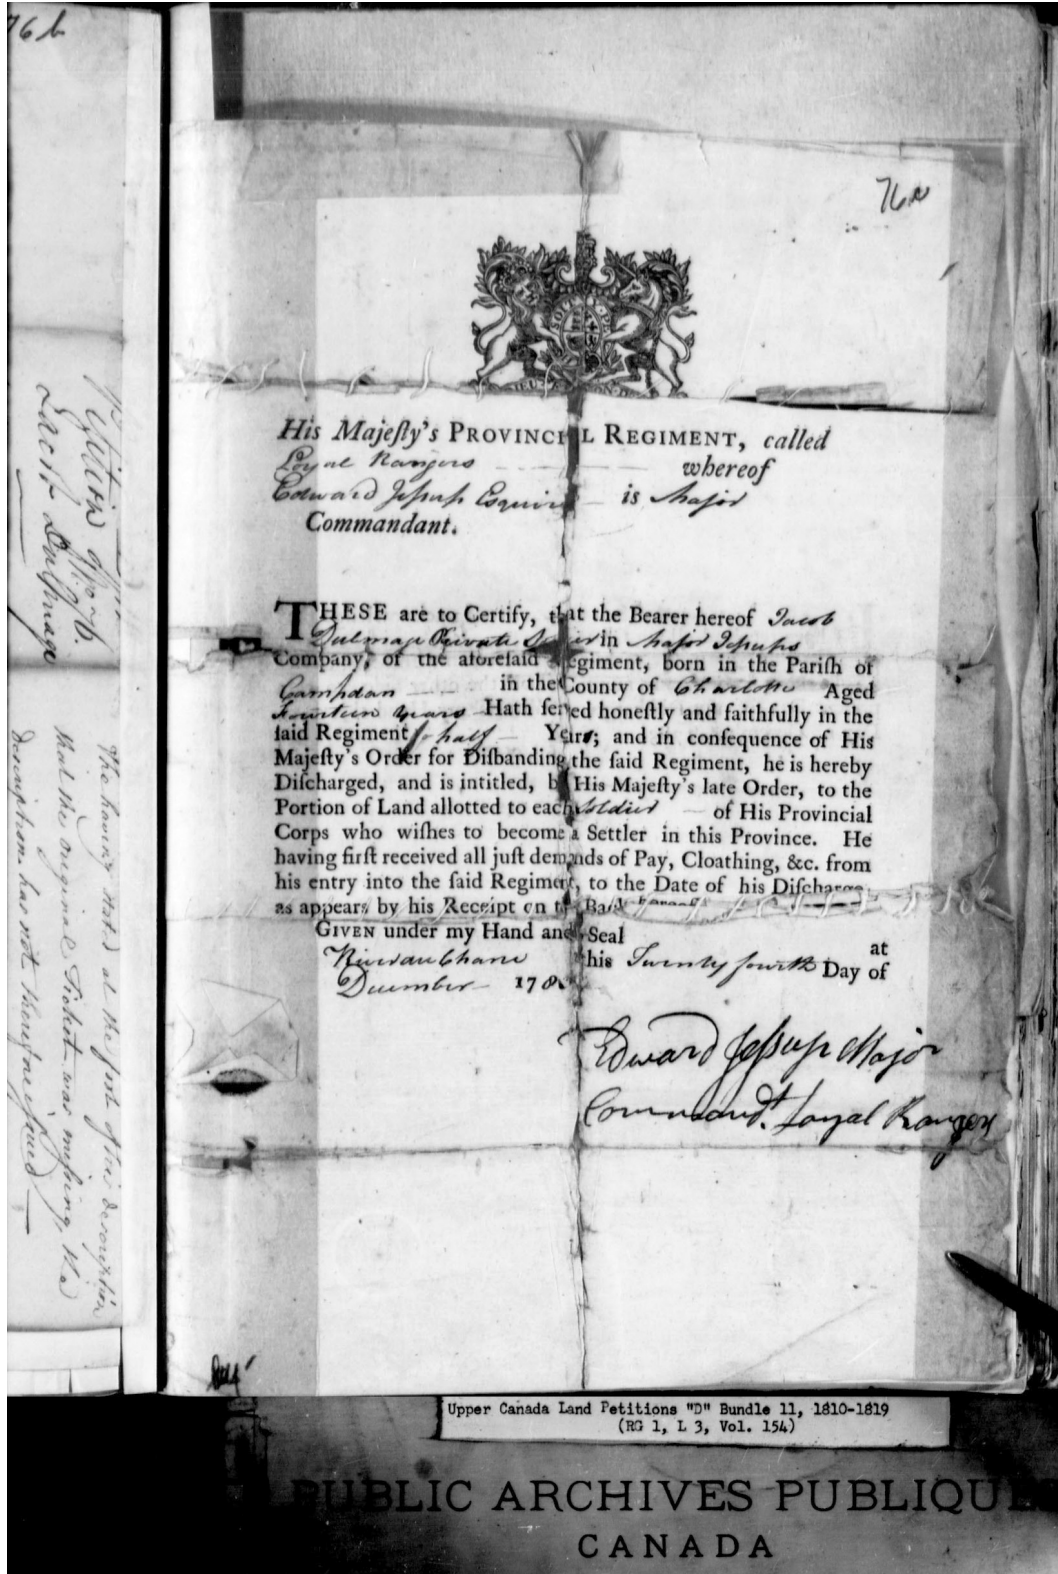 76b
Petition of
Jacob Dulmage
The having stated at the foot of this description
that the original Ticket was missing, the
description has not therefore issued —
76a
His Majeſty's PROVINCIAL REGIMENT, called
Loyal Rangers whereof
Edward Jeſsup Esquire is Major
Commandant.
THESE are to Certify, that the Bearer hereof Jacob
Dulmage Private in Major Jeſsups
Company, of the aforeſaid Regiment, born in the Pariſh of
Campdon in the County of Charlotte Aged
Fourteen years Hath ſerved honeſtly and faithfully in the
ſaid Regiment half Years; and in conſequence of His
Majeſty's Order for Diſbanding the ſaid Regiment, he is hereby
Diſcharged, and is intitled, by His Majeſty's late Order, to the
Portion of Land allotted to each Soldier of His Provincial
Corps who wiſhes to become a Settler in this Province. He
having firſt received all juſt demands of Pay, Cloathing, &c. from
his entry into the ſaid Regiment, to the Date of his Diſcharge,
as appears by his Receipt on the Back hereof.
GIVEN under my Hand and Seal at
Riviere du Chene this Twenty fourth Day of
December 178
Edward Jeſsup Major
Commandt. Loyal Rangers
Upper Canada Land Petitions "D" Bundle 11, 1810-1819
(RG 1, L 3, Vol. 154)
PUBLIC ARCHIVES PUBLIQUE
CANADA